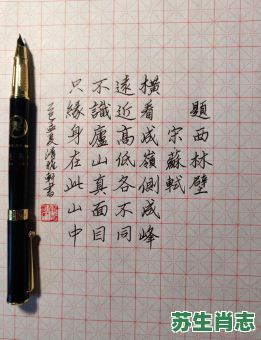 題西林壁
宗蘇軾
橫看成嶺側成峰
遠近高低各不同
不識廬山真面目
只緣身在此山中
苏生肖志